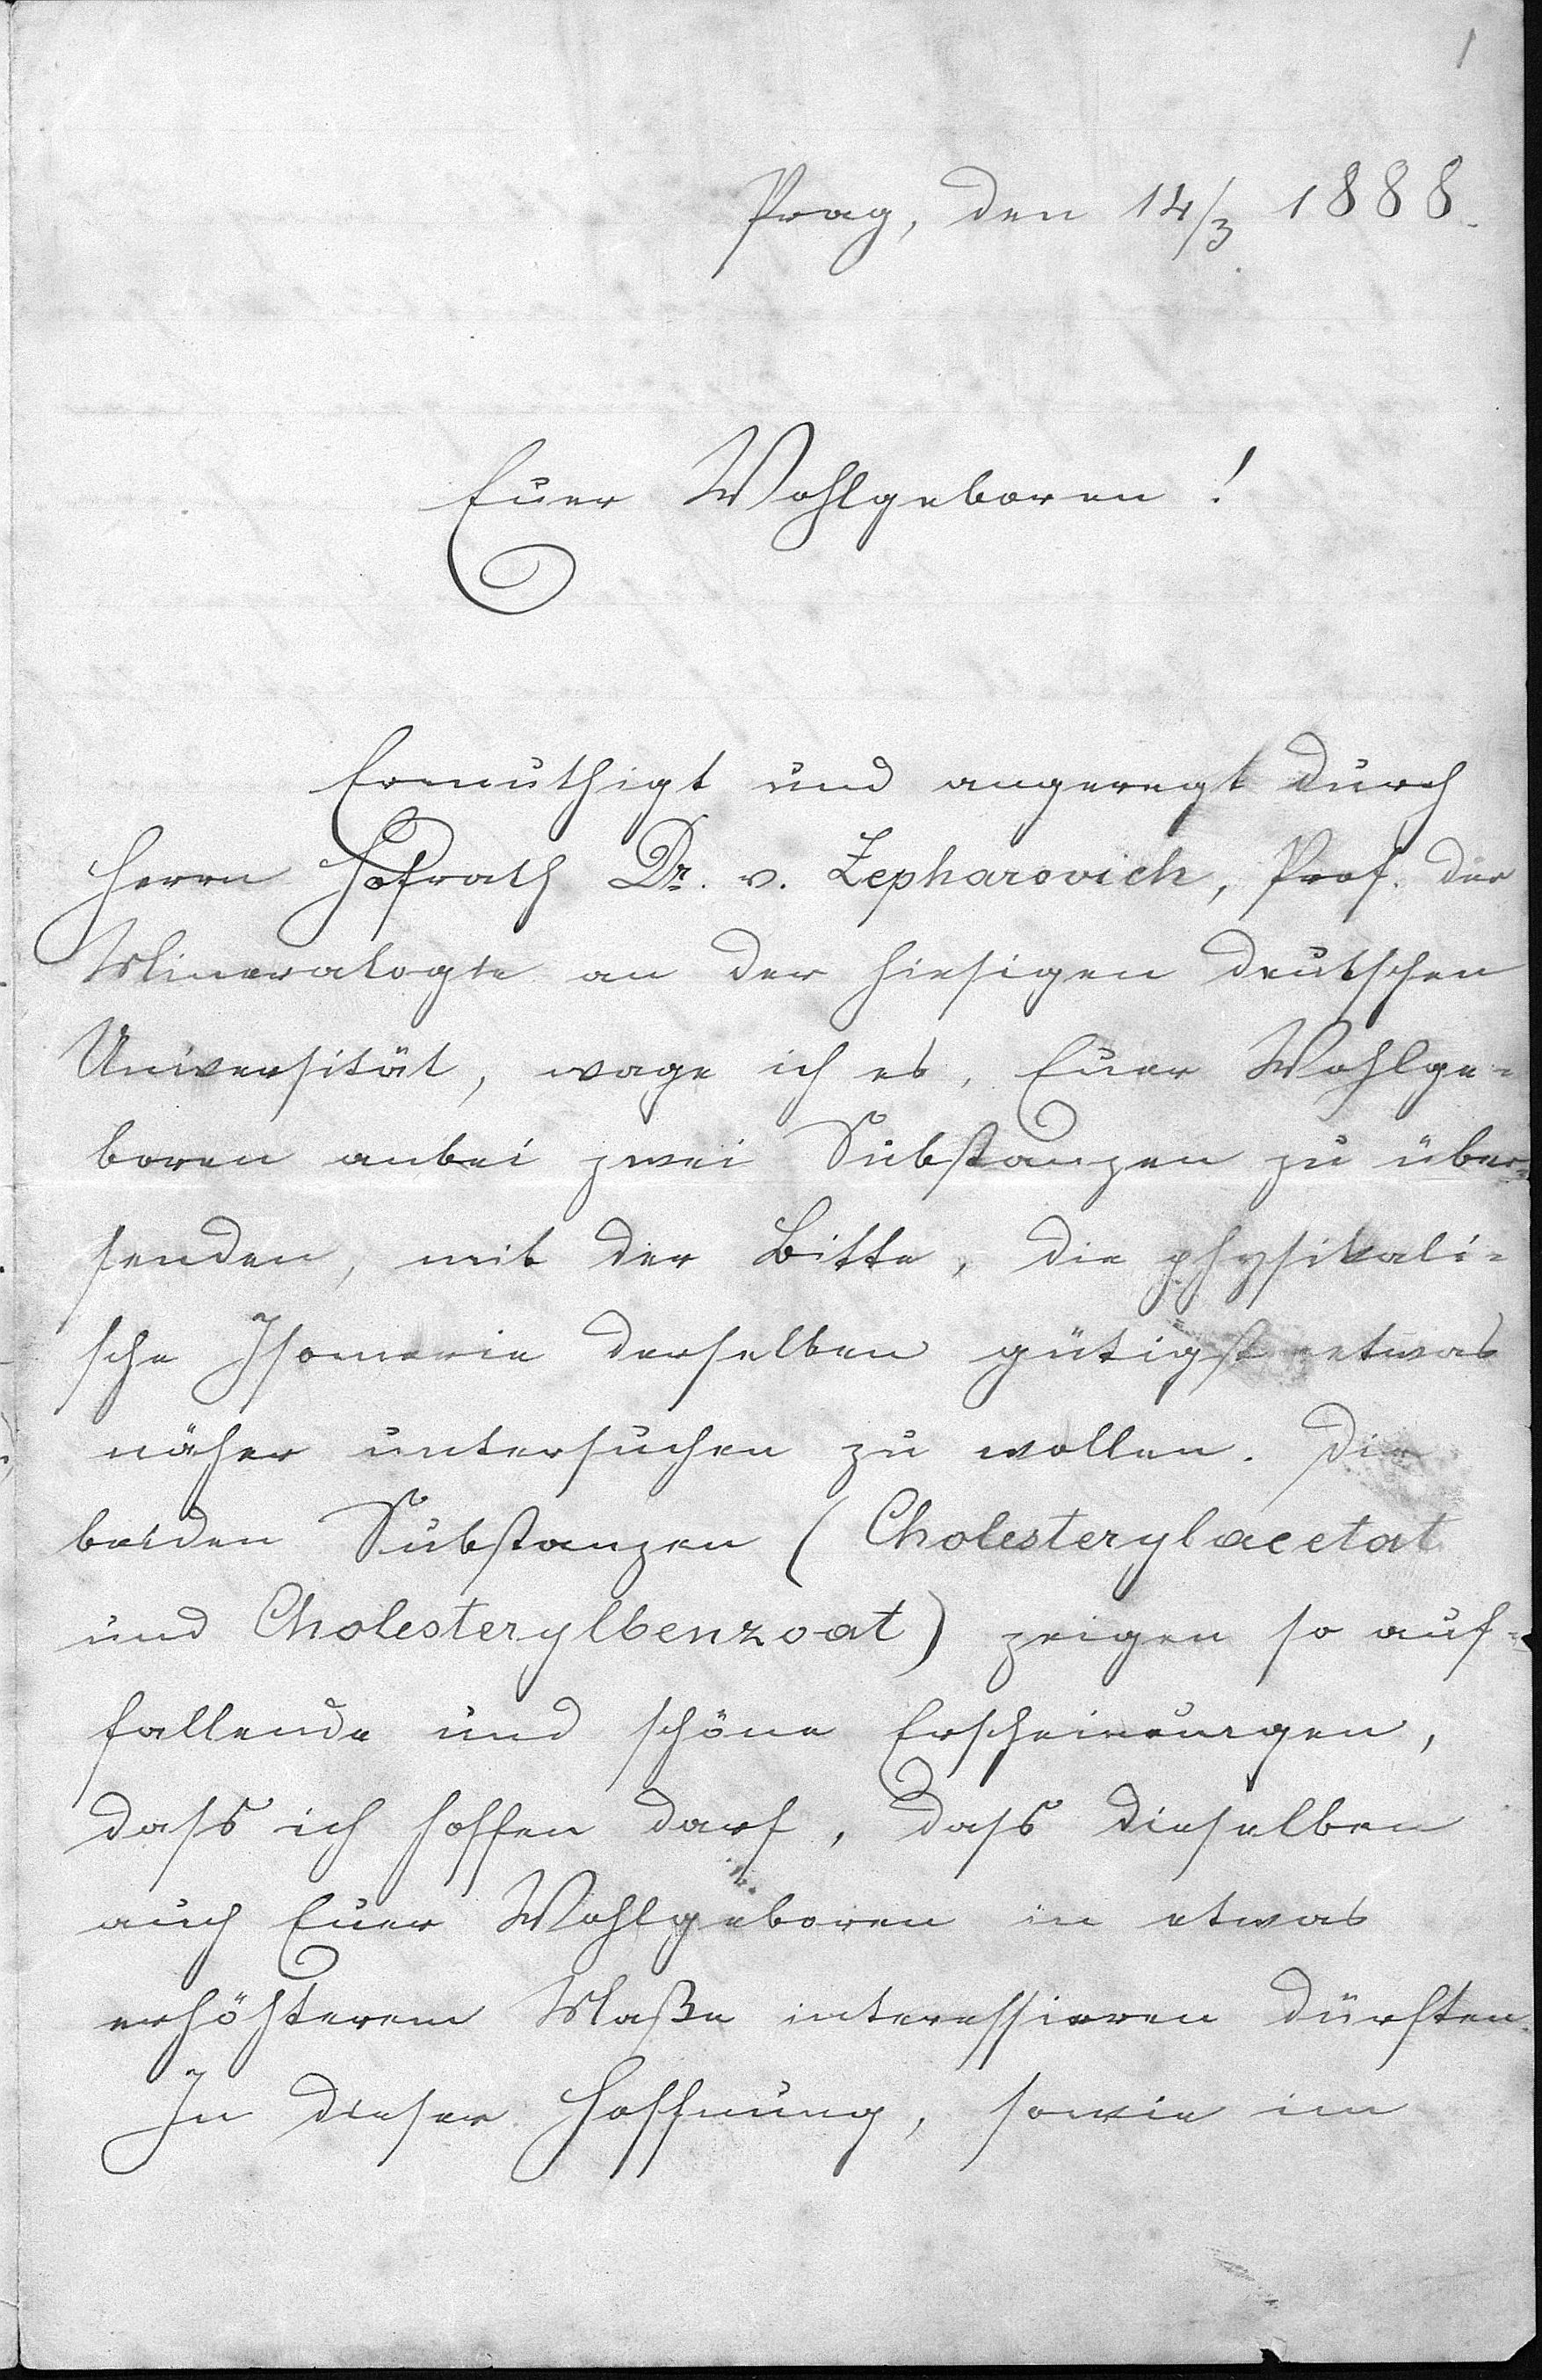 1
Prag, den 14/3 1888.
Euer Wohlgeboren!
Ermuthigt und angeregt durch
Herrn Hofrath Dr. v. Zepharovich, Prof. der
Mineralogie an der hiesigen deutschen
Universität, wage ich es, Euer Wohlge=
boren anbei zwei Substanzen zu über=
senden, mit der Bitte, die physikali=
sche Isomerie derselben gütigst etwas
näher untersuchen zu wollen. Die
beiden Substanzen (Cholesterylacetat
und Cholesterylbenzoat) zeigen so auf=
fallende und schöne Erscheinungen,
dass ich hoffen darf, dass dieselben
auch Euer Wohlgeboren in etwas
erhöhterem Maße interessieren dürften.
In dieser Hoffnung, sowie im